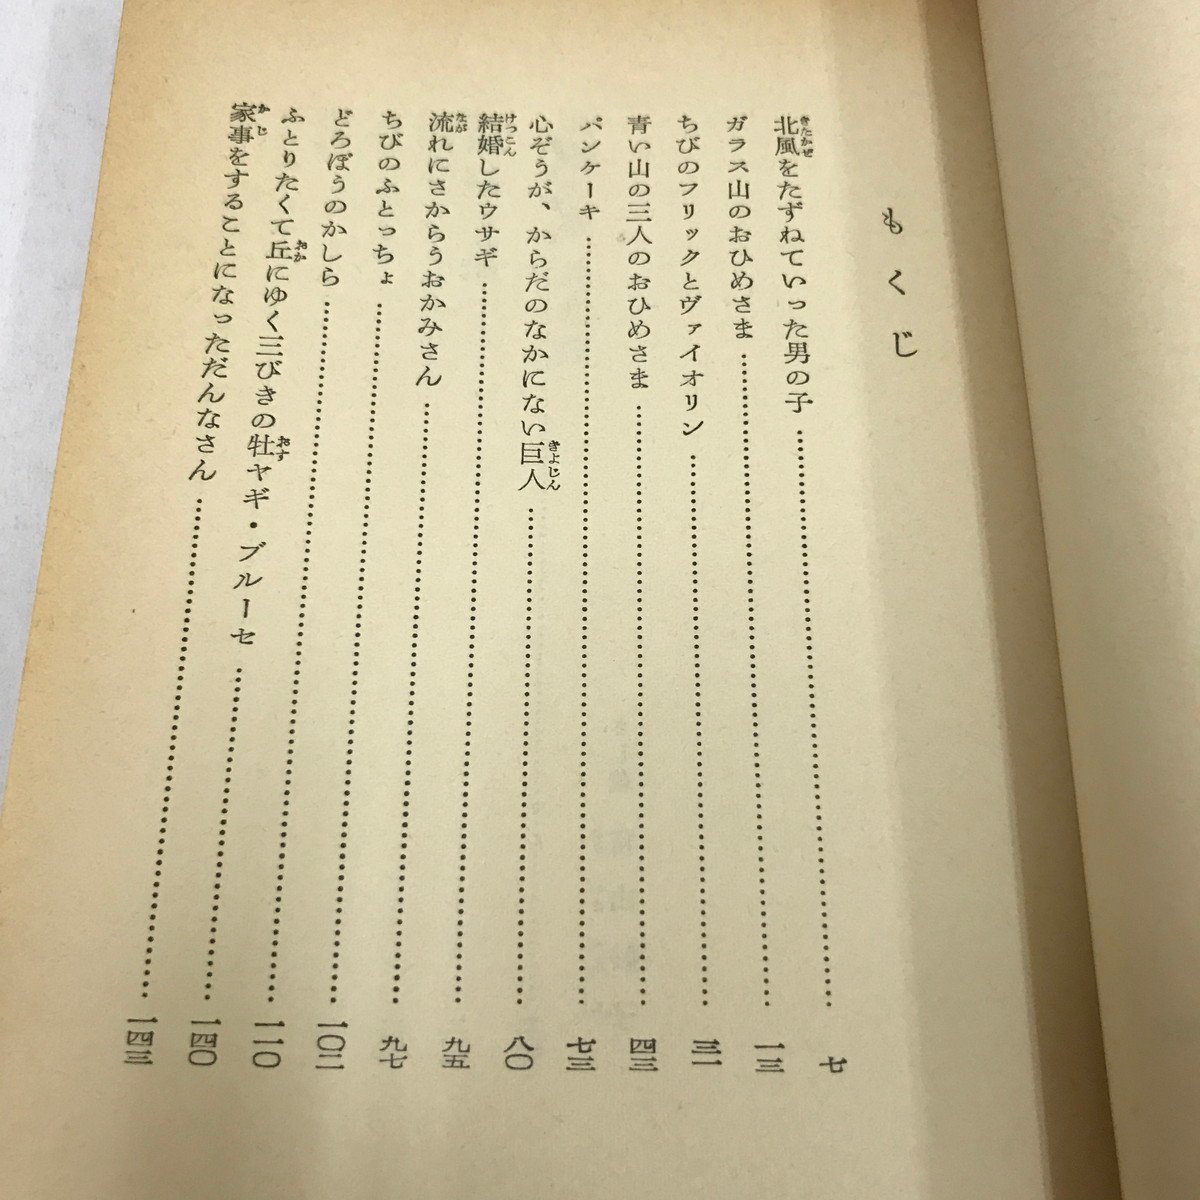 もくじ
北風をたずねていった男の子……七
ガラス山のおひめさま……一三
ちびのフリックとヴァイオリン……三一
青い山の三人のおひめさま……四三
パンケーキ……七三
心ぞうが、からだのなかにない巨人……八〇
結婚したウサギ……九五
流れにさからうおかみさん……九七
ちびのふとっちょ……一〇二
どろぼうのかしら……一一〇
ふとりたくて丘にゆく三びきの牡ヤギ・ブルーセ……一四〇
家事をすることになっただんなさん……一四三